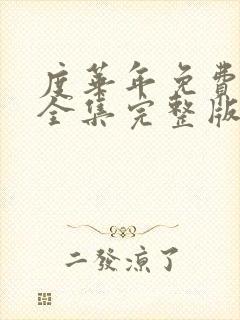 度华年免费
全集完整版
二發涼了